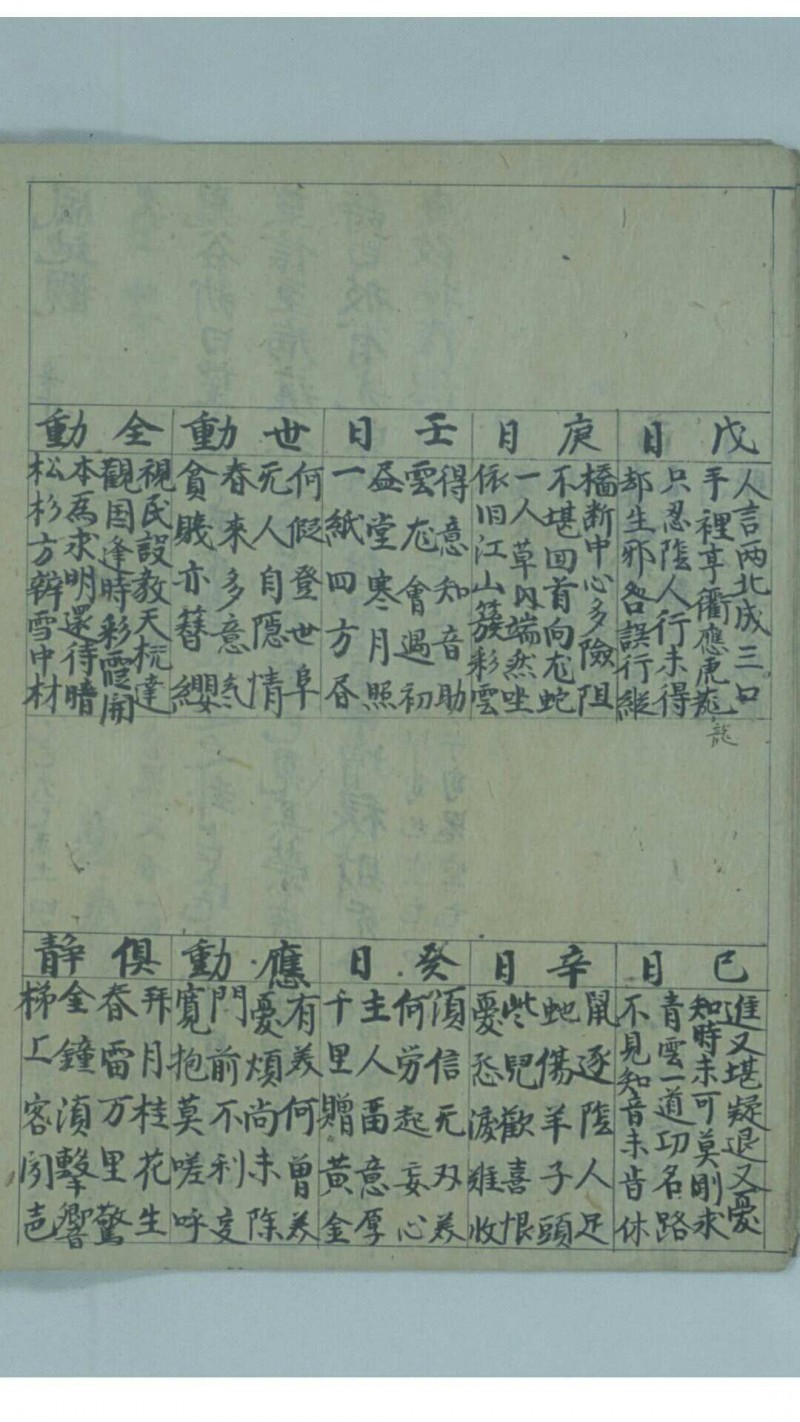 戊日
人言兩北成三口
手裡亨衢應虎竜
龍
只忍陰人行未得
却生邪各誤行縱
庚日
橋断中心多險阻
不堪回首向尨蛇
一人草內端然坐
依旧江山簇彩雲
壬日
得意知音助
雲尨會遇初
昼堂寒月照
一紙四方昏
世動
何假登世阜
死人自隱情
春來多意炁
貪賤亦簪纓
全動
視民設教天橈達
觀国逢時彩霞開
本為求明還待暗
松杉方辨雪中材
巳日
進又堪疑退又憂
知時未可莫剛求
青雲一道功名路
不見知音未肯休
辛日
鼠逐陰人足
虵傷羊子頭
些兒歡喜恨
憂恐淚难收
癸日
須信无双美
何労起妄心
主人畱意厚
千里贈黃金
應動
有美何曾美
憂煩尚未除
門前不利交
寬抱莫嗟呼
俱靜
拜月桂花生
春雷万里驚
金鐘湏擊響
梯上客闻声